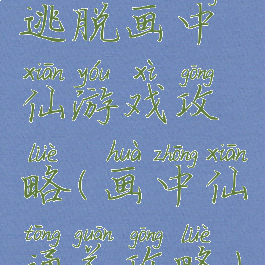 逃脱画中
xiān yóu xì gōng
仙游戏攻
lüè huà zhōng xiān
略(画中仙
tōng guān gōng lüè
通关攻略)